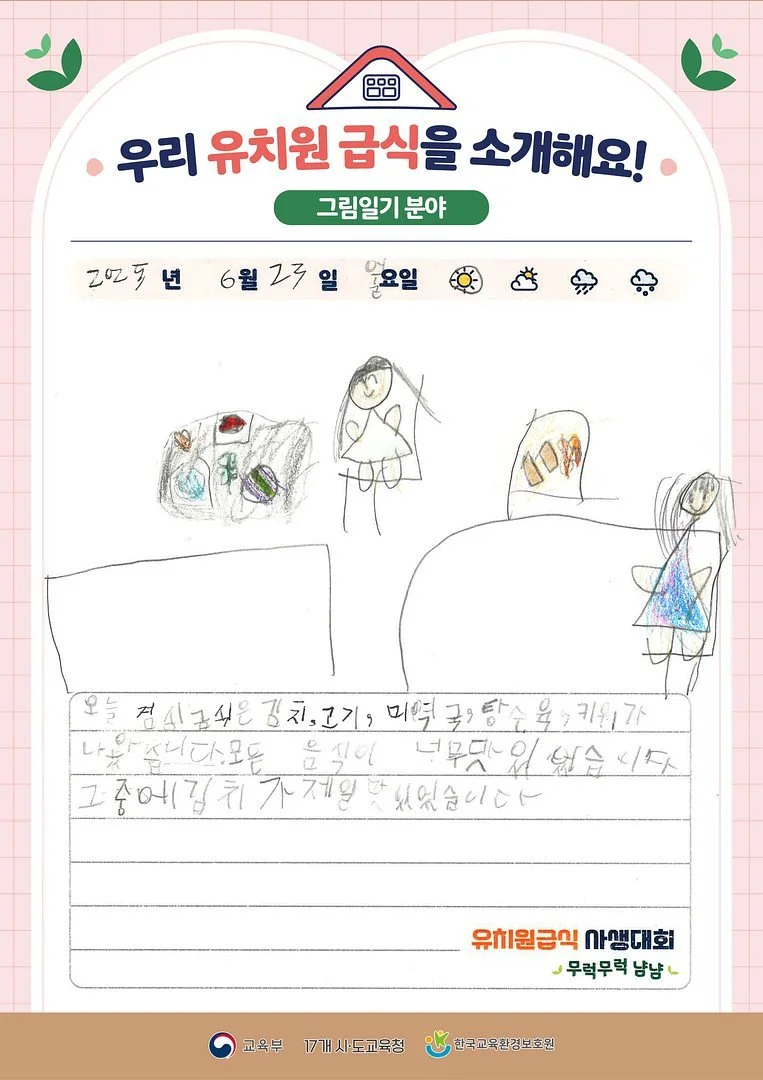 우리 유치원 급식을 소개해요!
그림일기 분야
2025 년 6월 23 일 월요일
오늘 점심 급식은 김치, 고기, 미역국, 탕수육, 키위가
나왔습니다. 모든 음식이 너무 맛있었습니다
그중에 김치가 제일 맛있었습니다
유치원급식 사생대회
무럭무럭 냠냠
교육부 17개 시·도교육청 한국교육환경보호원